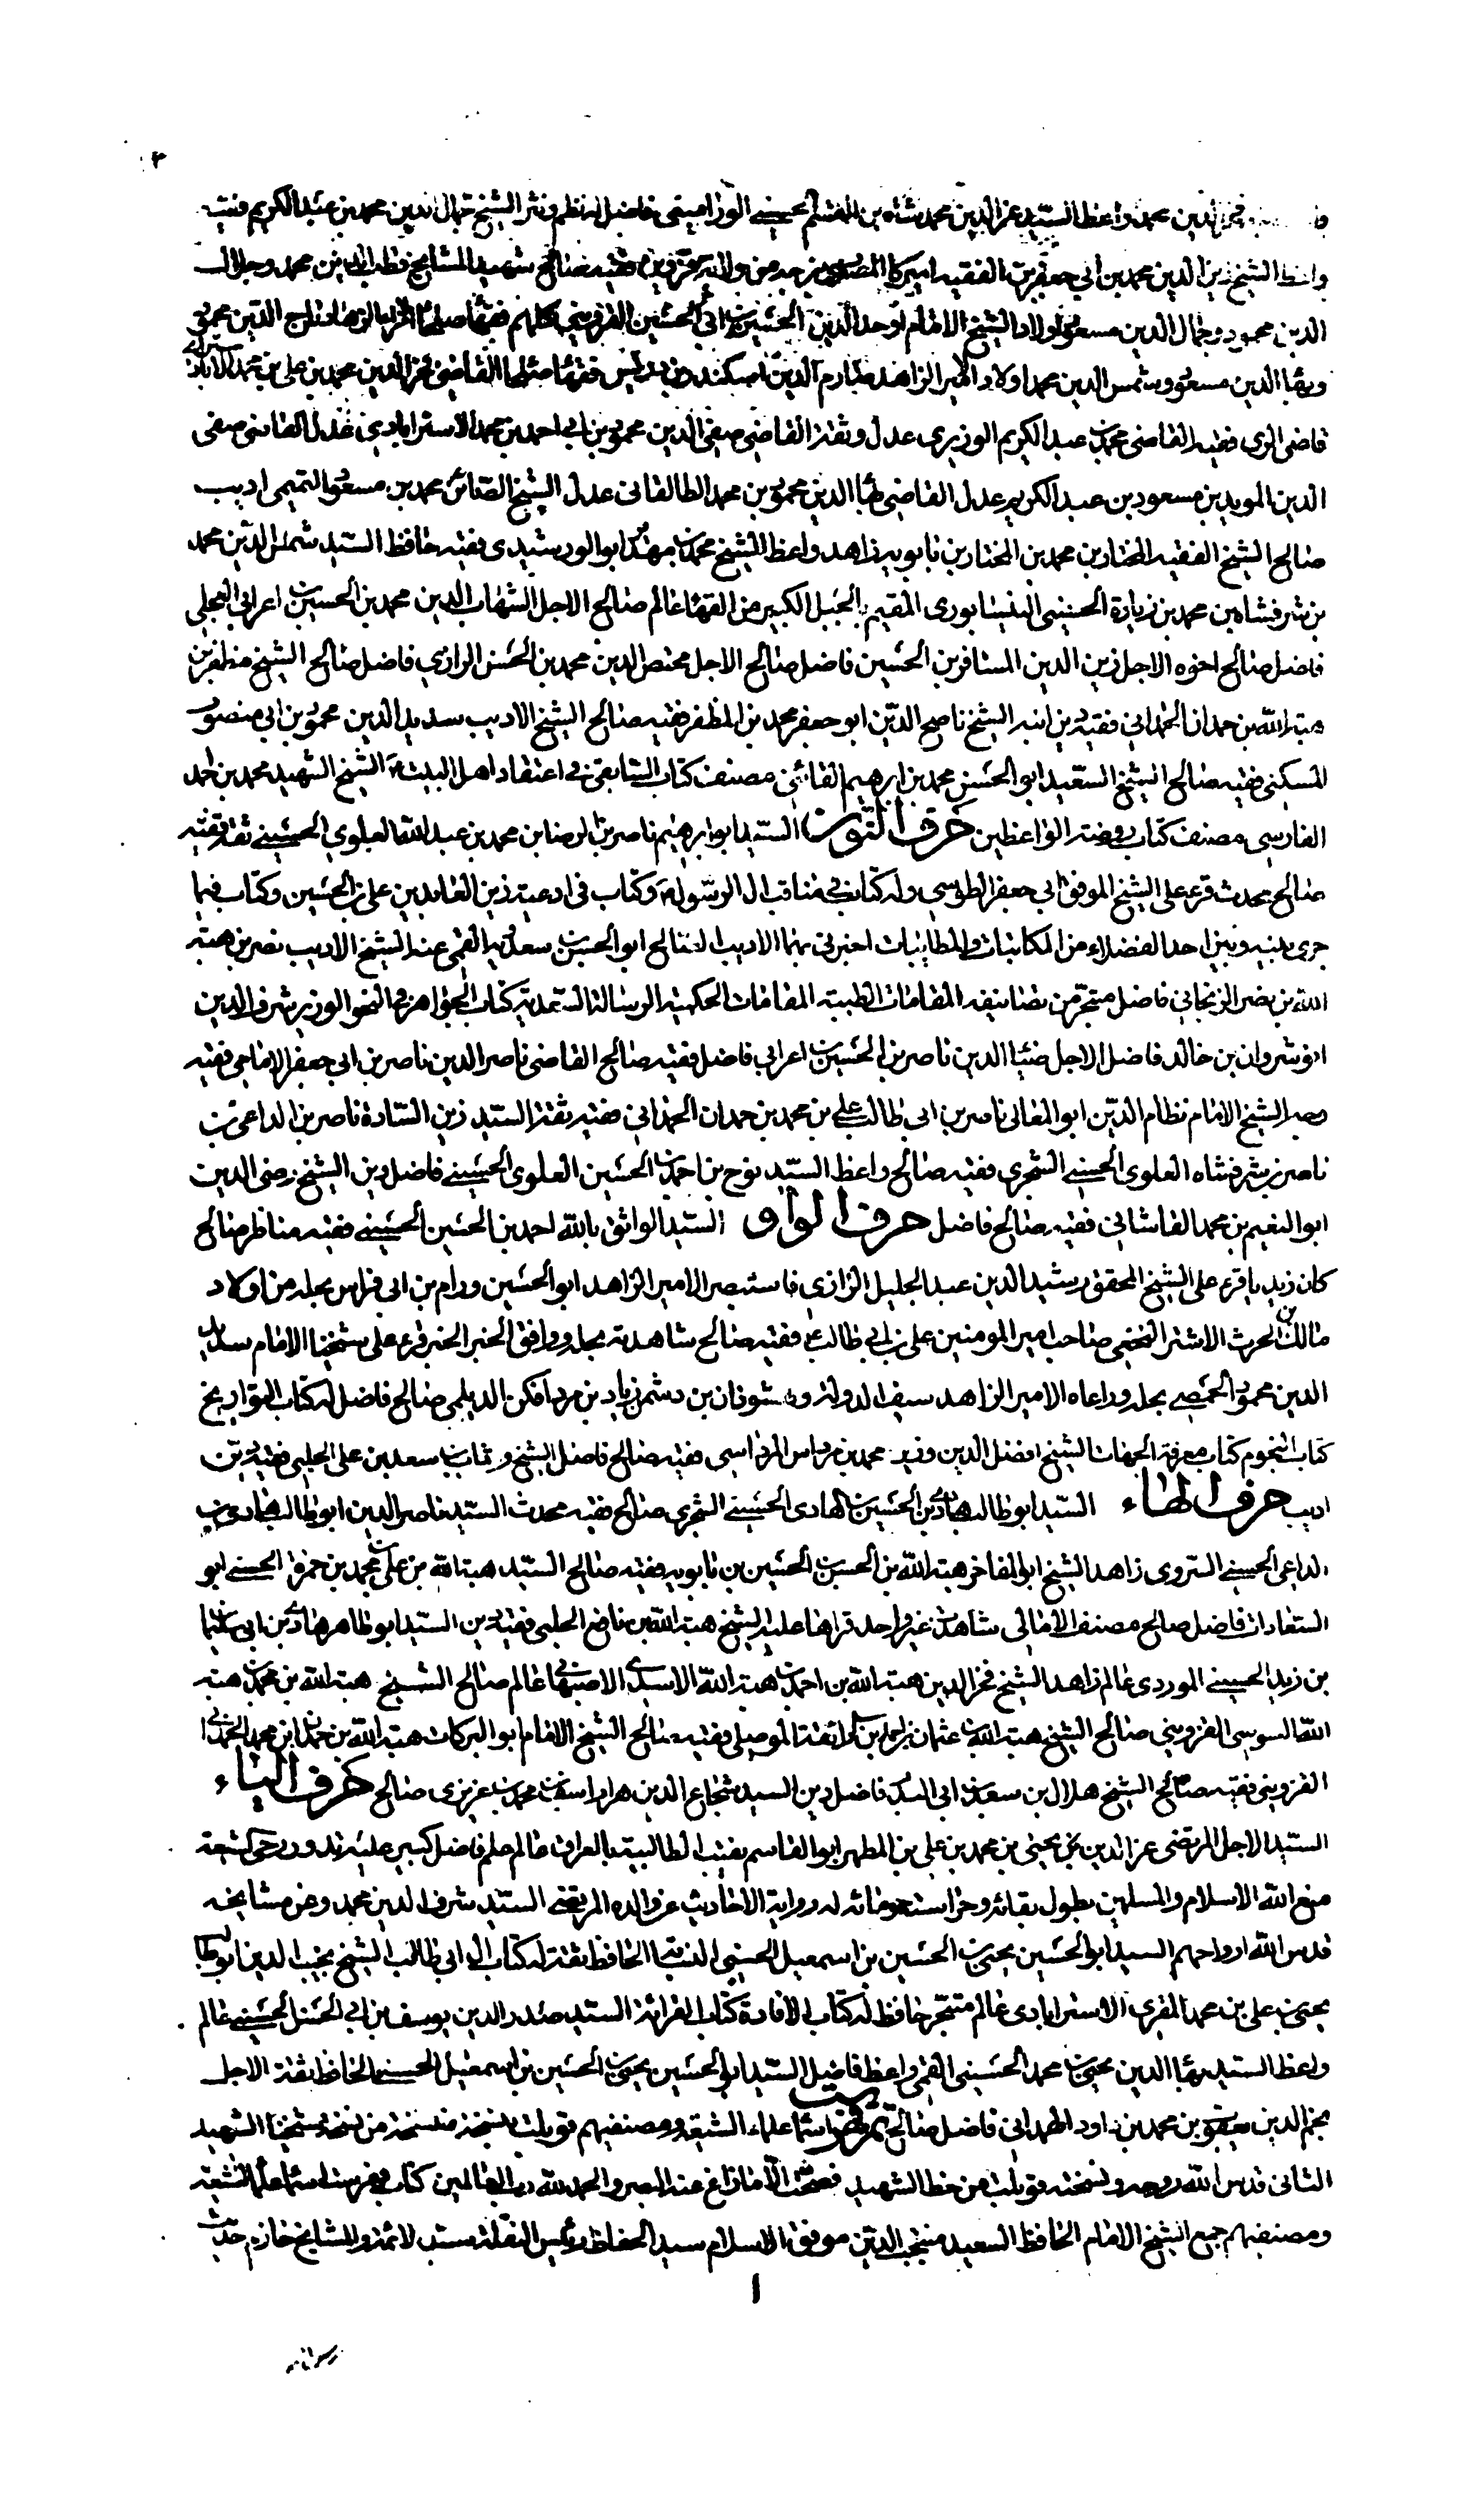 فخر الدين محمد واعظ السيد عز الدين محمد شاه بن القسم الحسيني الوراميني فاضل له نظم ونثر الشيخ جمال الدين محمد بن عبد الكريم فقيه
واعظ الشيخ زين الدين محمد بن ابي جعفر بن الفقيه اميركا المصدري بنرجه من ولاية قزوين فقيه صالح شهيد المشايخ قطب الدين محمد وجلال
الدين محمود وجمال الدين مسعود اولاد الشيخ الامام اوحد الدين الحسين بن ابي الحسين القزويني كلهم فقهاء صلحاء الامراء الزهاد تاج الدين محمود
وبهاء الدين مسعود وشمس الدين محمد اولاد الامير الزاهد صارم الدين اسكندر بن دربيس فقهاء صلحاء القاضي فخر الدين محمد بن علي بن محمد الاسترابادي
قاضي الري فقيه القاضي محمد بن عبد الكريم الوزيري عدل وثقة القاضي صفي الدين محمود بن ابي احمد بن محمد الاسترابادي عدل القاضي صفي
الدين المويد بن مسعود بن عبد الكريم عدل القاضي بهاء الدين محمود بن محمد الطالقاني عدل الشيخ الصائن محمد بن مسعود التميمي اديب
صالح الشيخ الفقيه المختار بن محمد بن المختار بن بابويه زاهد واعظ الشيخ محمد بن مهدي ابو الورشيدي فقيه حافظ السيد شمس الدين محمد
بن شرفشاه بن محمد بن زيارة الحسيني النيسابوري المقيم بالجبل الكبير من الفقها عالم صالح الاجل شهاب الدين محمد بن الحسين بن اعرابي العجلي
فاضل صالح اخوه الاجل زين الدين المسافر بن الحسين فاضل صالح الاجل مختص الدين محمد بن الحسن الرازي فاضل صالح الشيخ مظفر بن
هبة الله بن حمدان الحمداني فقيه دين ابنه الشيخ ناصح الدين ابو جعفر محمد بن المظفر فقيه صالح الشيخ الاديب سديد الدين محمود بن ابي منصور
المسكني فقيه صالح الشيخ السعيد ابو الحسن محمد بن ابرهيم القائني مصنف كتاب السابقي في اعتقاد اهل البيت ع الشيخ الشهيد محمد بن احمد
الفارسي مصنف كتاب روضة الواعظين حرف النون السيد ابو ابرهيم ناصر بن الرضا بن محمد بن عبد الله العلوي الحسيني ثقة فقيه
صالح محدث قرء على الشيخ الموفق ابي جعفر الطوسي وله كتاب في مناقب ال الرسول ع وكتاب في ادعية زين العابدين علي بن الحسين وكتاب فيما
جرى بينه وبين احد الفضلاء من المكاتبات والمطايبات اخبرني بهما الاديب الصالح ابو الحسين بن سعدويه القمي عنه الشيخ الاديب نصر بن هبة
الله بن نصر الزنجاني فاضل متبحر من تصانيفه المقامات الطبية المقامات الحكمية الرسالة السعدية كتاب الجواهر في النحو الوزير شرف الدين
انوشروان بن خالد فاضل الاجل ضياء الدين ناصر بن الحسين بن اعرابي فاضل فقيه صالح القاضي ناصر الدين ناصر بن ابي جعفر الامامي فقيه
وجه الشيخ الامام نظام الدين ابو المعالي ناصر بن ابي طالب علي بن محمد بن حمدان الحمداني فقيه ثقة السيد زين السادة ناصر بن الداعي بن
ناصر بن شرفشاه العلوي الحسيني الشجري فقيه صالح واعظ السيد نوح بن احمد بن الحسين العلوي الحسيني فاضل دين الشيخ رضي الدين
ابو النعيم بن محمد القاشاني فقيه صالح فاضل حرف الواو السيد الواثق بالله احمد بن الحسين الحسيني فقيه مناظر صالح
كان زيديا قرء على الشيخ المحقق رشيد الدين عبد الجليل الرازي فاستبصر الامير الزاهد ابو الحسين ورام بن ابي فراس بحله من اولاد
مالك بن الحرث الاشتر النخعي صاحب امير المومنين علي بن ابي طالب ع فقيه صالح شاهدته بحله ووافق الخبر الخبر قرء على شيخنا الامام سديد
الدين محمود الحمصي بحله وراعاه الامير الزاهد سيف الدولة وهشوذان بن دشمنزيار بن مردافكن الديلمي صالح فاضل له كتاب التواريخ
كتاب النجوم كتاب معرفة الجهات الشيخ افضل الدين وزير محمد بن مرداس المرداسي فقيه صالح فاضل الشيخ وثاب بن سعد بن علي الحلبي فقيه دين
اديب حرف الهاء السيد ابو طالب هادي بن الحسين بن الهادي الحسيني الشجري صالح فقيه محدث السيد ناصر الدين ابو طالب هادي بن
الداعي الحسيني السروي زاهد الشيخ ابو المفاخر هبة الله بن الحسن بن الحسين بن بابويه فقيه صالح السيد هبة الله بن علي بن محمد بن حمزة الحسني ابو
السعادات فاضل صالح مصنف الامالي شاهدت غير واحد قراها عليه الشيخ هبة الله بن نافع الحلبي فقيه دين السيد ابو طاهر هادي بن ابي سليمان
بن زيد الحسيني الموردي عالم زاهد الشيخ فخر الدين هبة الله بن احمد بن هبة الله الاسدي الاصبهاني عالم صالح الشيخ هبة الله بن محمد بن هبة
الله السوسي القزويني صالح الشيخ هبة الله بن عثمان بن احمد بن الرائقة الموصلي فقيه صالح الشيخ الامام ابو البركات هبة الله بن حمدان بن محمد الحمداني
القزويني فقيه صالح الشيخ هلال بن سعد بن ابي البدر فاضل دين السيد شجاع الدين هزاراسف بن محمد بن عزيزي صالح حرف الياء
السيد الاجل المرتضى عز الدين يحيى بن محمد بن علي بن المطهر ابو القاسم نقيب الطالبية بالعراق عالم علم فاضل كبير عليه تدور رحى الشيعة
متع الله الاسلام والمسلمين بطول بقائه وحراسة حوبائه له رواية الاحاديث عن والده المرتضى السيد شرف الدين محمد وعن مشايخه
قدس الله ارواحهم السيد ابو الحسين يحيى بن الحسين بن اسمعيل الحسني النسابة الحافظ ثقة له كتاب ال ابي طالب الشيخ نجيب الدين ابو طالب
يحيى بن علي بن محمد المقري الاسترابادي عالم متبحر حافظ له كتاب الافادة كتاب القرائة السيد صدر الدين يوسف بن ابي الحسن الحسيني عالم
واعظ السيد بهاء الدين يحيى بن محمد الحسيني القمي واعظ فاضل السيد ابو الحسين يحيى بن الحسين بن اسمعيل الحسني الحافظ ثقة الاجل
نجم الدين يعقوب بن محمد بن داود الهمداني فاضل صالح تم فهرست اسماء علماء الشيعة ومصنفيهم قوبلت بنسخة منسخة من نسخة شيخنا الشهيد
الثاني قدس الله روحه ونسخته قوبلت من خط الشهيد فصحت الا ما زاغ عنه البصر والحمد لله رب العالمين كتاب فهرست اسماء علماء الشيعة
ومصنفيهم جمع الشيخ الامام الحافظ السعيد منتجب الدين موفق الاسلام سيد الحفاظ رئيس النقلة سيد الائمة والمشايخ خادم حديث